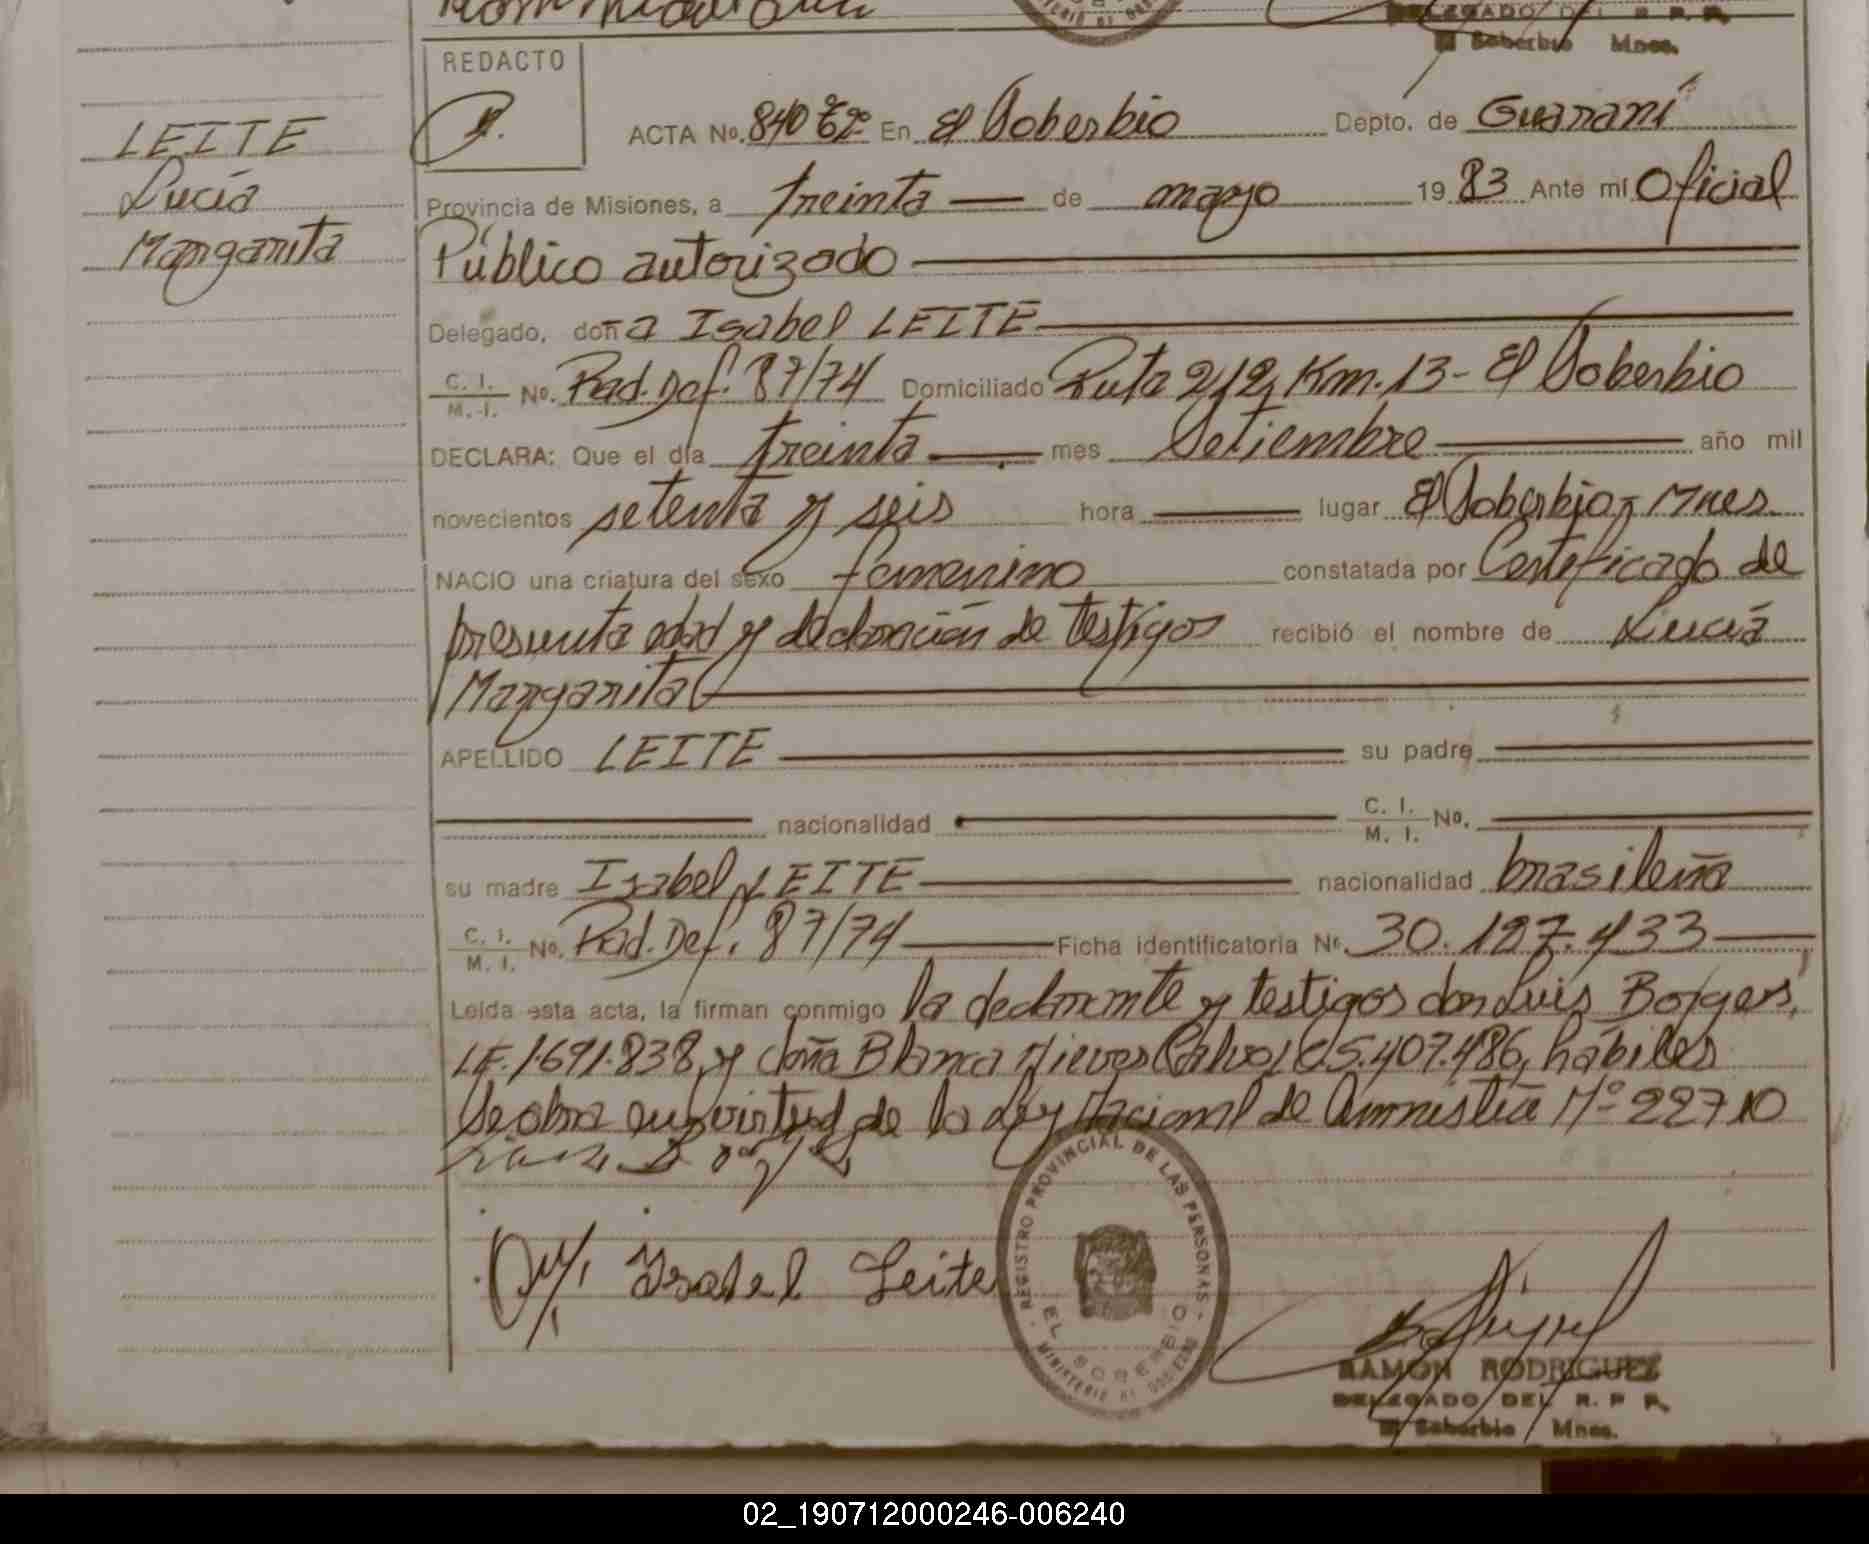 DELEGADO DEL R. P. P.
El Soberbio Mnes.
REDACTO
LEITE
Lucía
Margarita
ACTA No. 840 En El Soberbio Depto. de Guaraní
Provincia de Misiones, a treinta de mayo 1983 Ante mí Oficial
Público autorizado
Delegado, doña Isabel LEITE
C. I. / M. I. No. Rad. Def. 87/74 Domiciliado Ruta 212, Km. 13 - El Soberbio
DECLARA: Que el día treinta mes Setiembre año mil
novecientos setenta y seis hora lugar El Soberbio - Mnes.
NACIO una criatura del sexo femenino constatada por Certificado de
presunta edad y declaración de testigos recibió el nombre de Lucía
Margarita
APELLIDO LEITE su padre
nacionalidad C. I. / M. I. No.
su madre Isabel LEITE nacionalidad brasileña
C. I. / M. I. No. Rad. Def. 87/74 Ficha identificatoria No. 30.127.433
Leída esta acta, la firman conmigo la declarante y testigos don Luis Borges,
LE. 1.691.838, y doña Blanca Nieves Calvo, LC 5.407.486, hábiles
Se obra en virtud de la Ley Nacional de Amnistía Nº 22710
Isabel Leite
REGISTRO PROVINCIAL DE LAS PERSONAS
EL SOBERBIO
MINISTERIO DE GOBIERNO
RAMON RODRIGUEZ
DELEGADO DEL R. P. P.
El Soberbio Mnes.
02_190712000246-006240